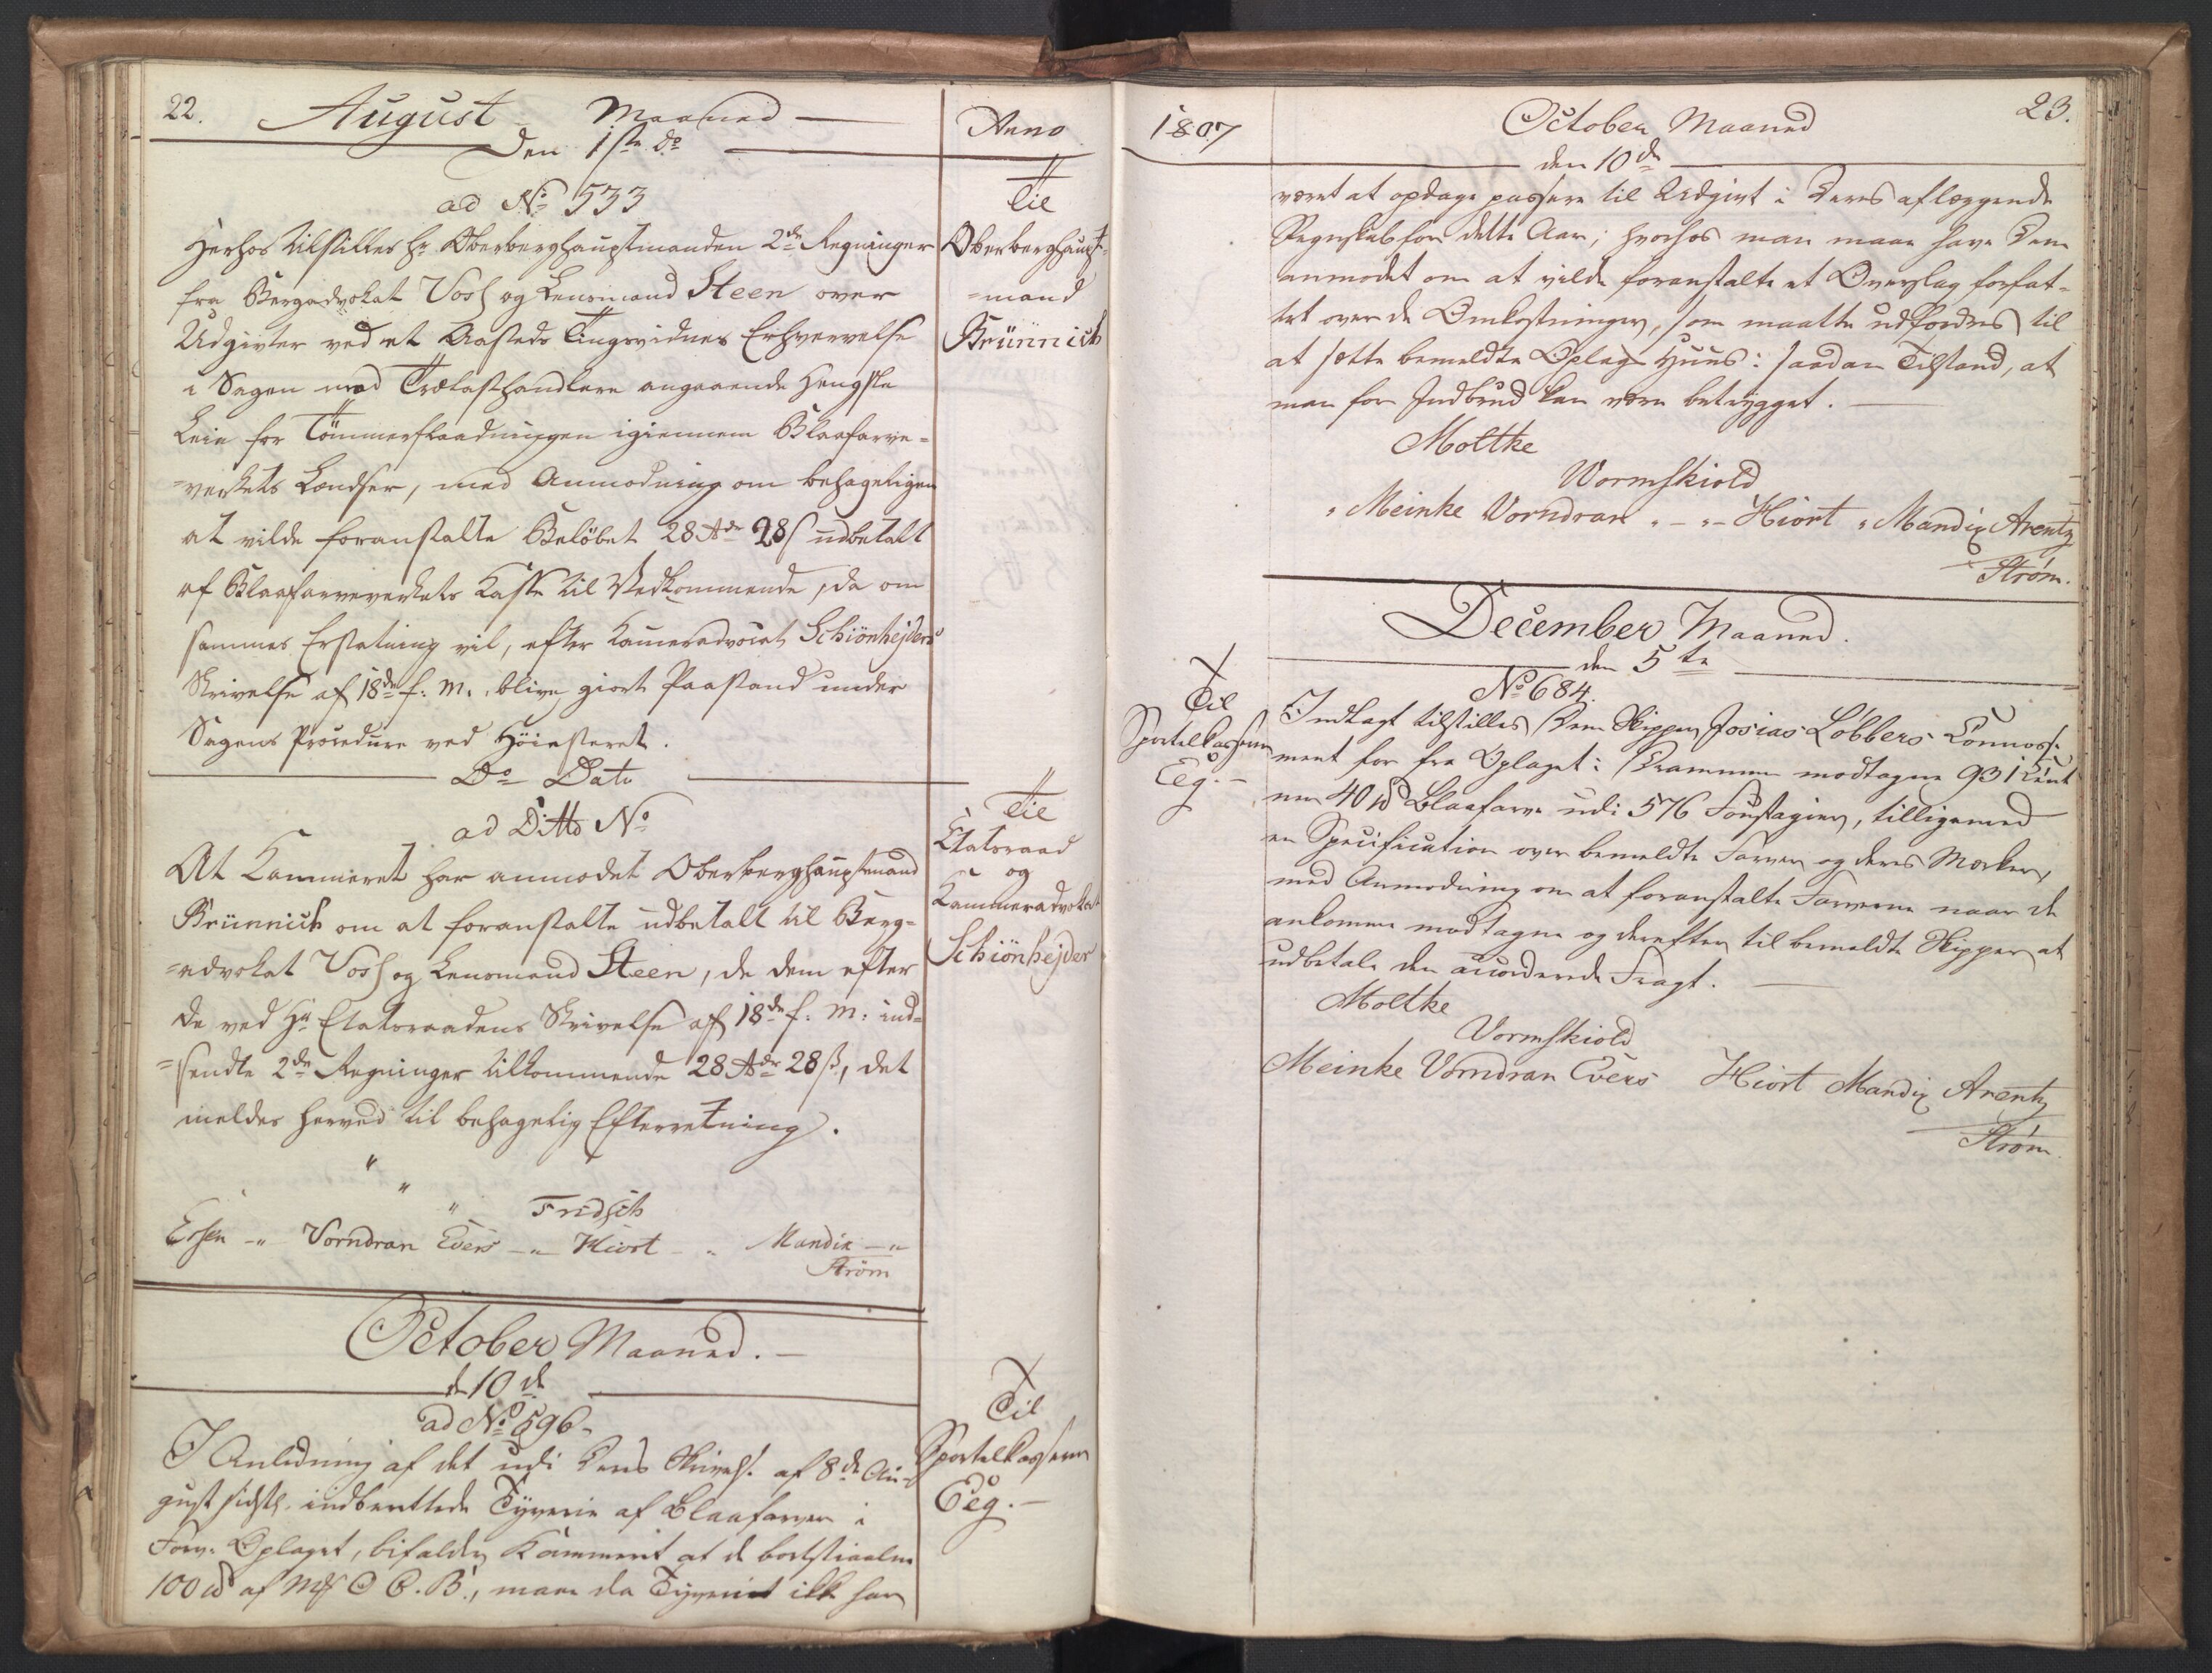 22.
August Maaned
Anno
Den 1ste do
ad No 533
Til
Oberberghaupt-
=mand
Brünnich
Herhos tilstilles Hr Oberberghauptmanden 2de Regninger
fra Bergadvokat Voss og Lensmand Steen over
Udgivter ved et Aasteds Tingsvidnes Erhvervelse
i Sagen mod Trælasthandlere angaaende Hengste
Leie for Tömmerflaadningen igiennem Blaafarve=
=verkets Lændser, med Anmodning om behageligen
at vilde foranstalte Belöbet 28 rdr 28 s udbetalt
af Blaafarveverkets Kasse til Vedkommende, da om
sammes Erstatning vil, efter Kammeradvocat Schiönhejders
Skrivelse af 18de f: M:, blive giort Paastand under
Sagens Procedure ved Höiesteret.
Do Dato
ad Ditto No
Til
Etatsraad
og
Kammeradvokat
Schiönhejder
At Kammeret har anmodet Oberberghauptmand
Brünnich om at foranstalte udbetalt til Berg=
=advokat Voss og Lensmand Steen, de dem efter
de ved Hr Etatsraadens Skrivelse af 18de f: M: ind=
=sendte 2de Regninger tilkommende 28 rdr 28 ß, det
meldes herved til behagelig Efterretning.
" " " Fridsch
Essen -" Vorndran Evers -" Hiort -" Mandix -"
Ström
October Maaned.
d 10de
ad No 596
Til
Sportelkasserer
Eeg.
I Anledning af det udi Deres Skrivelse af 8de Au=
gust sidstl. indberettede Tyverie af Blaafarver i
Farv: Oplaget, bifalder Kammeret at de bortstiaalne
100 ℔ af Mk O C. B., maae da Tyveriet ikke har
1807
October Maaned
23.
den 10de
været at opdage passere til Udgivt i Deres aflæggende
Regnskab for dette Aar; hvorhos man maae have Dem
anmodet om at vilde foranstalte et Overslag forfat-
tet over de Omkostninger, som maatte udfordres til
at sætte bemeldte Oplags Huus i saadan Tilstand, at
man for Indbrud kan være betrygget.
Moltke
Wormskiold
" Meinke Vorndran " - " - Hiort " Mandix Arentz
Ström.
December Maaned.
den 5te
No 684.
Til
Sportelkasserer
Eeg.
Indlagt tilstilles Dem Skipper Josias Löbbers Connosse-
ment for fra Oplaget i Drammen modtagne 931 Cent
ner 40 ℔ Blaafarve udi 576 Foustagier, tilligemed
en Specification over bemeldte Farver og deres Mærker,
med Anmodning om at foranstalte Farverne naar de
ankomme modtagne og derefter til bemeldte Skipper at
udbetale den accorderede Fragt.
Moltke
Vormskiold
Meinke Vorndran Evers Hiort Mandix Arentz
Ström.